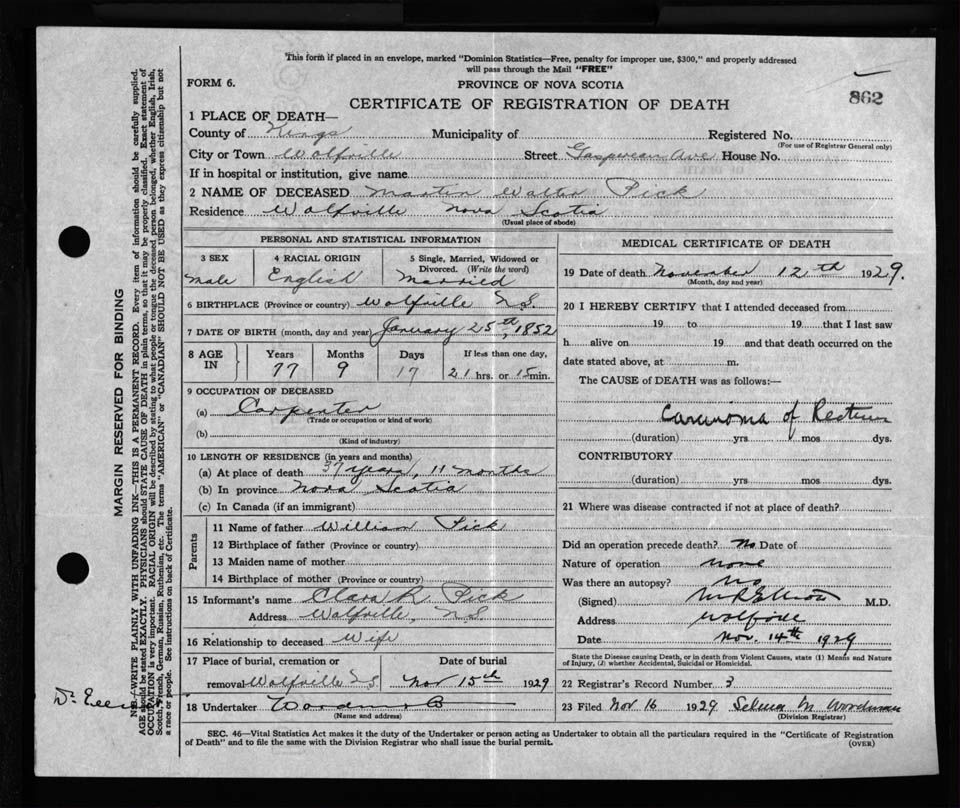 This form if placed in an envelope, marked "Dominion Statistics—Free, penalty for improper use, $300," and properly addressed
will pass through the Mail "FREE"
FORM 6.
PROVINCE OF NOVA SCOTIA
CERTIFICATE OF REGISTRATION OF DEATH
862
1 PLACE OF DEATH—
County of Kings Municipality of Registered No.
(For use of Registrar General only)
City or Town Wolfville Street Gaspereau Ave House No.
If in hospital or institution, give name
2 NAME OF DECEASED Martin Walter Pick
Residence Wolfville Nova Scotia
(Usual place of abode)
PERSONAL AND STATISTICAL INFORMATION
3 SEX 4 RACIAL ORIGIN 5 Single, Married, Widowed or
Divorced. (Write the word)
male English Married
6 BIRTHPLACE (Province or country) Wolfville N.S.
7 DATE OF BIRTH (month, day and year) January 25th, 1852
8 AGE IN Years Months Days If less than one day,
77 9 17 21 hrs. or 15 min.
9 OCCUPATION OF DECEASED
(a) Carpenter
(Trade or occupation or kind of work)
(b)
(Kind of industry)
10 LENGTH OF RESIDENCE (in years and months)
(a) At place of death 37 years, 11 months
(b) In province Nova Scotia
(c) In Canada (if an immigrant)
Parents
11 Name of father William Pick
12 Birthplace of father (Province or country)
13 Maiden name of mother
14 Birthplace of mother (Province or country)
15 Informant's name Clara R. Pick
Address Wolfville, N.S.
16 Relationship to deceased Wife
17 Place of burial, cremation or Date of burial
removal Wolfville N.S. Nov 15th 1929
18 Undertaker
(Name and address)
MEDICAL CERTIFICATE OF DEATH
19 Date of death November 12th 1929.
(Month, day and year)
20 I HEREBY CERTIFY that I attended deceased from
19 to 19 that I last saw
h alive on 19 and that death occurred on the
date stated above, at m.
The CAUSE of DEATH was as follows:—
Carcinoma of Rectum
(duration) yrs. mos. dys.
CONTRIBUTORY
(duration) yrs. mos. dys.
21 Where was disease contracted if not at place of death?
Did an operation precede death? No Date of
Nature of operation none
Was there an autopsy? No
(Signed) M.D.
Address Wolfville
Date Nov. 14th 1929
State the Disease causing Death, or in death from Violent Causes, state (1) Means and Nature
of Injury, (2) whether Accidental, Suicidal or Homicidal.
22 Registrar's Record Number 3
23 Filed Nov 16 1929 Selena M. Woodman
(Division Registrar)
SEC. 46—Vital Statistics Act makes it the duty of the Undertaker or person acting as Undertaker to obtain all the particulars required in the "Certificate of Registration
of Death" and to file the same with the Division Registrar who shall issue the burial permit.
(OVER)
MARGIN RESERVED FOR BINDING
N.B.—WRITE PLAINLY WITH UNFADING INK—THIS IS A PERMANENT RECORD. Every item of information should be carefully supplied.
AGE should be stated EXACTLY. PHYSICIANS should STATE CAUSE OF DEATH in plain terms, so that it may be properly classified. Exact statement of
OCCUPATION is very important. RACIAL ORIGIN will be described by stating to what people or tongue the deceased person belonged, whether English, Irish,
Scotch, French, German, Russian, Ruthenian, etc. The terms "AMERICAN" or "CANADIAN" SHOULD NOT BE USED as they express citizenship but not
a race or people. See instructions on back of Certificate.